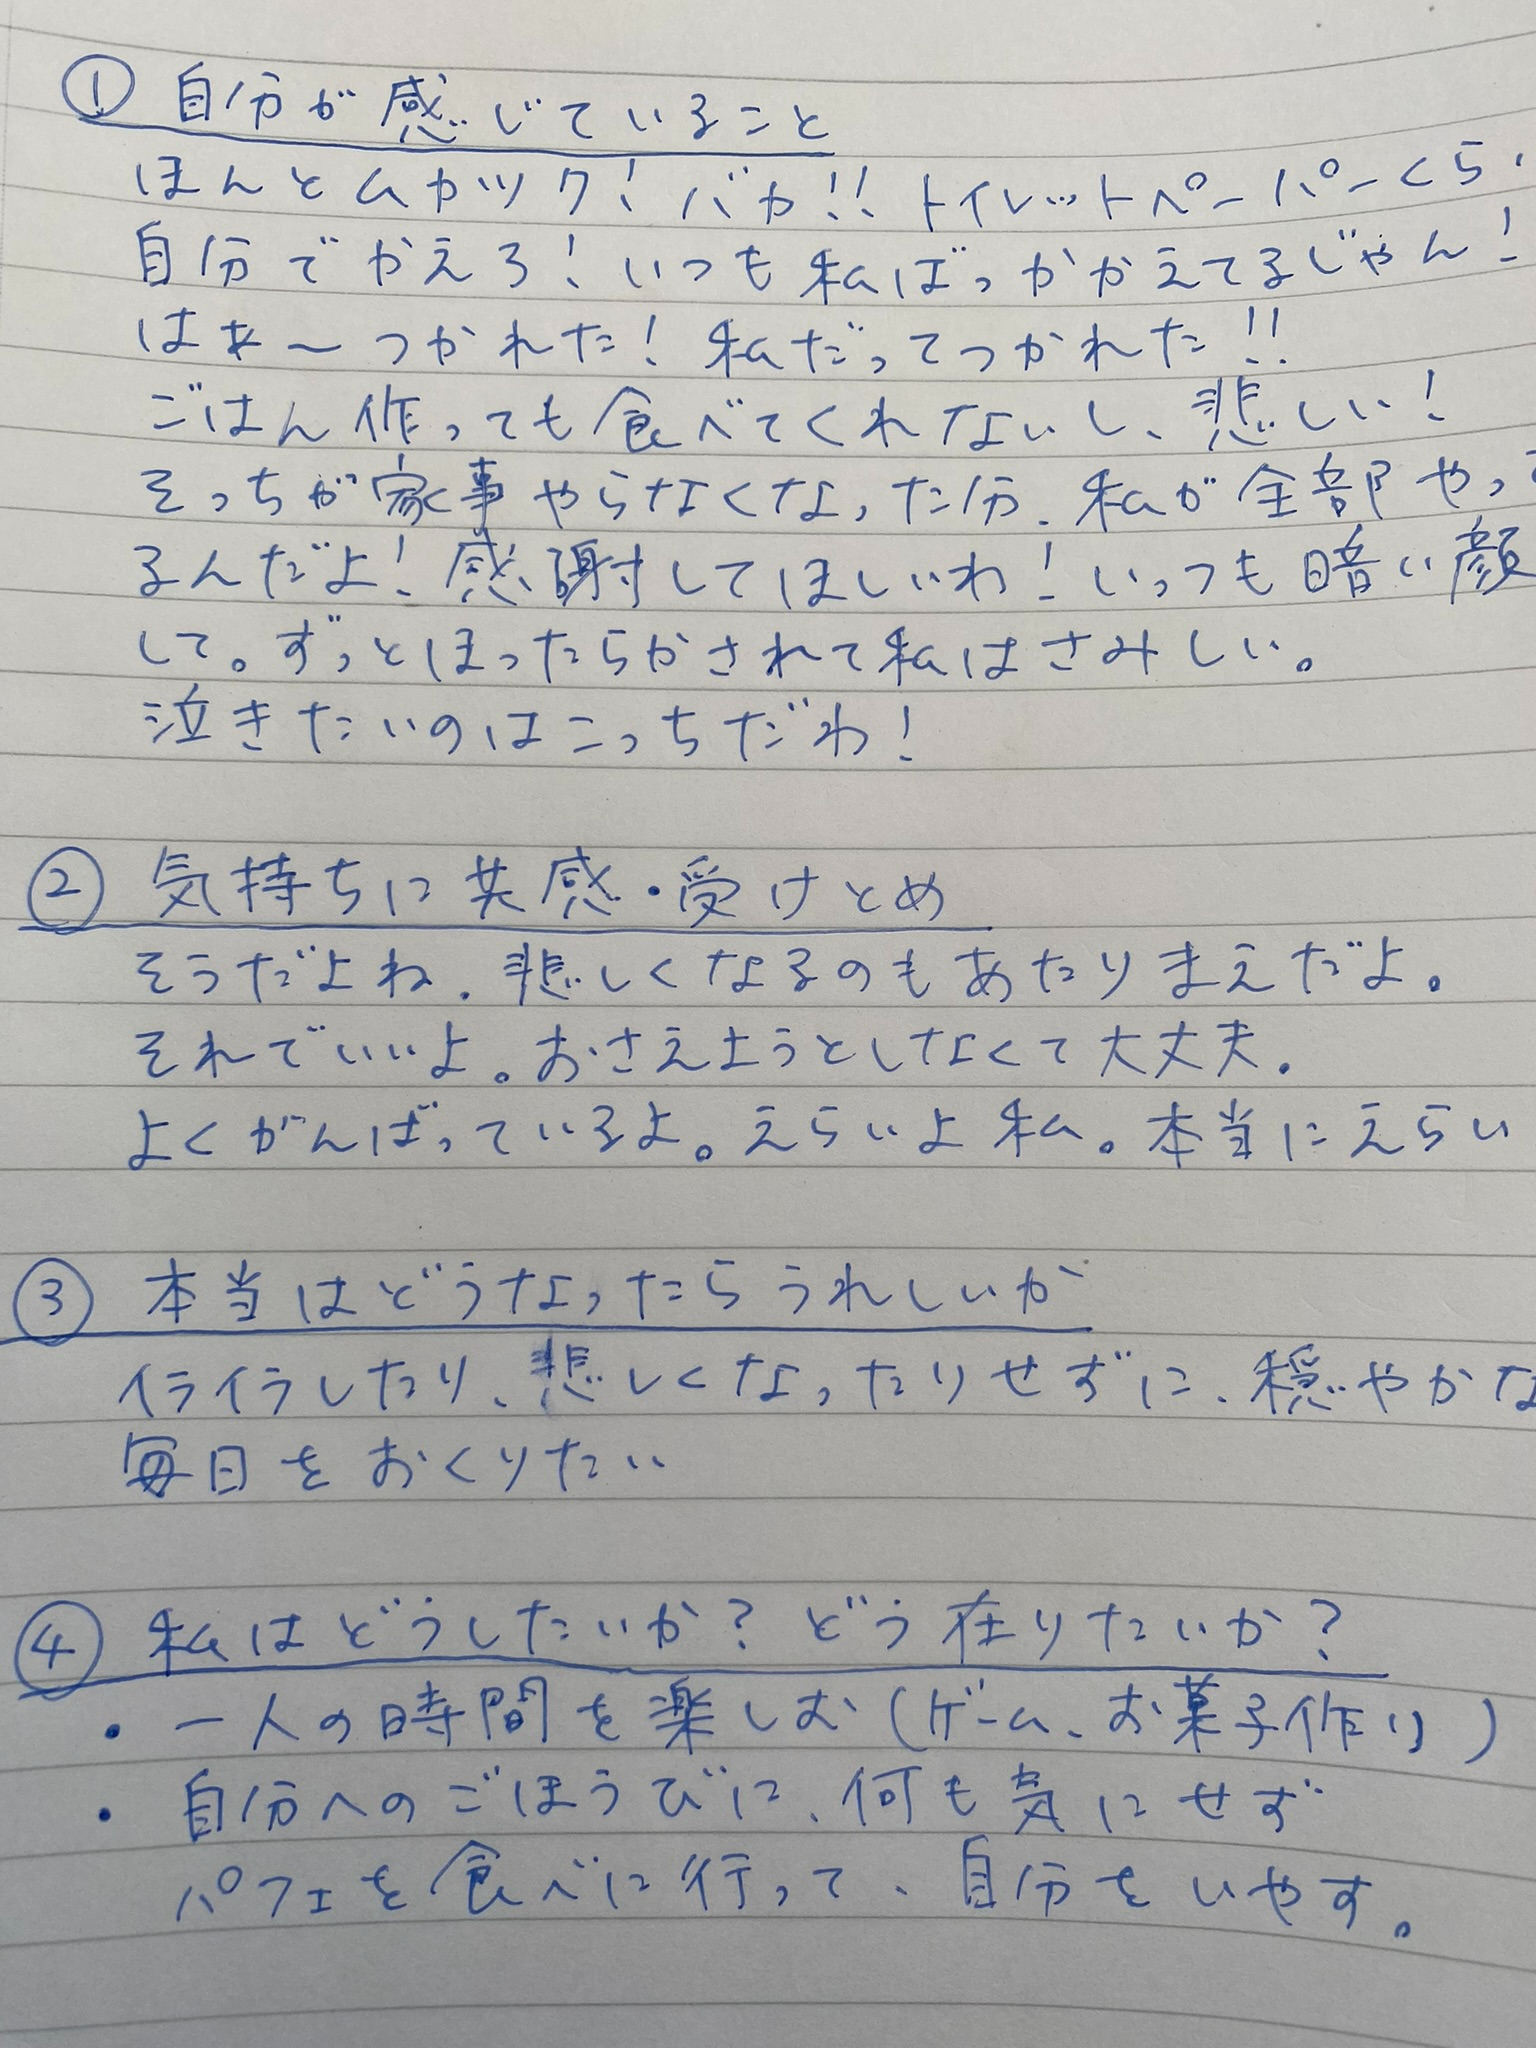 ① 自分が感じていること
ほんとムカツク!バカ!!トイレットペーパーくらい
自分でかえろ!いつも私ばっかかえてるじゃん!
はぁ〜つかれた!私だってつかれた!!
ごはん作っても食べてくれないし、悲しい!
そっちが家事やらなくなった分、私が全部やって
るんだよ!感謝してほしいわ!いっつも暗い顔
して。ずっとほったらかされて私はさみしい。
泣きたいのはこっちだわ!
② 気持ちに共感・受けとめ
そうだよね、悲しくなるのもあたりまえだよ。
それでいいよ。おさえようとしなくて大丈夫。
よくがんばっているよ。えらいよ私。本当にえらい
③ 本当はどうなったらうれしいか
イライラしたり、悲しくなったりせずに、穏やかな
毎日をおくりたい
④ 私はどうしたいか?どう在りたいか?
・一人の時間を楽しむ(ゲーム、お菓子作り)
・自分へのごほうびに、何も気にせず
パフェを食べに行って、自分をいやす。